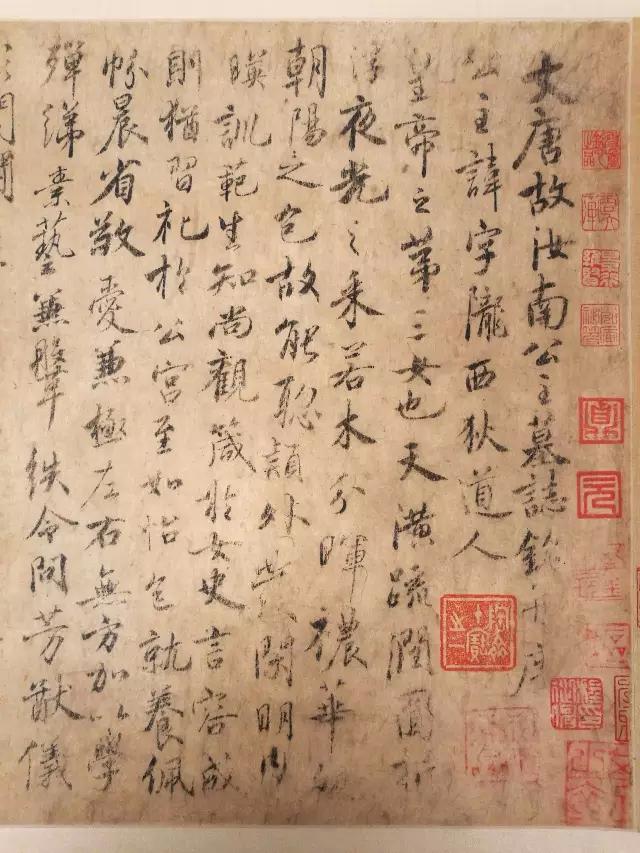 大唐故汝南公主墓誌銘并序
公主諱字隴西狄道人
皇帝之第三女也天潢疏潤圓折
浮夜光之采若木分暉穠華繞
朝陽之色故能聰穎外發閑明內
暎訓範生知尚觀箴於女史言容成
則猶習礼於公宮至如怡色就養佩
帉晨省敬愛兼極左右無方加以學
殫綈素藝兼鞶紩令問芳猷儀